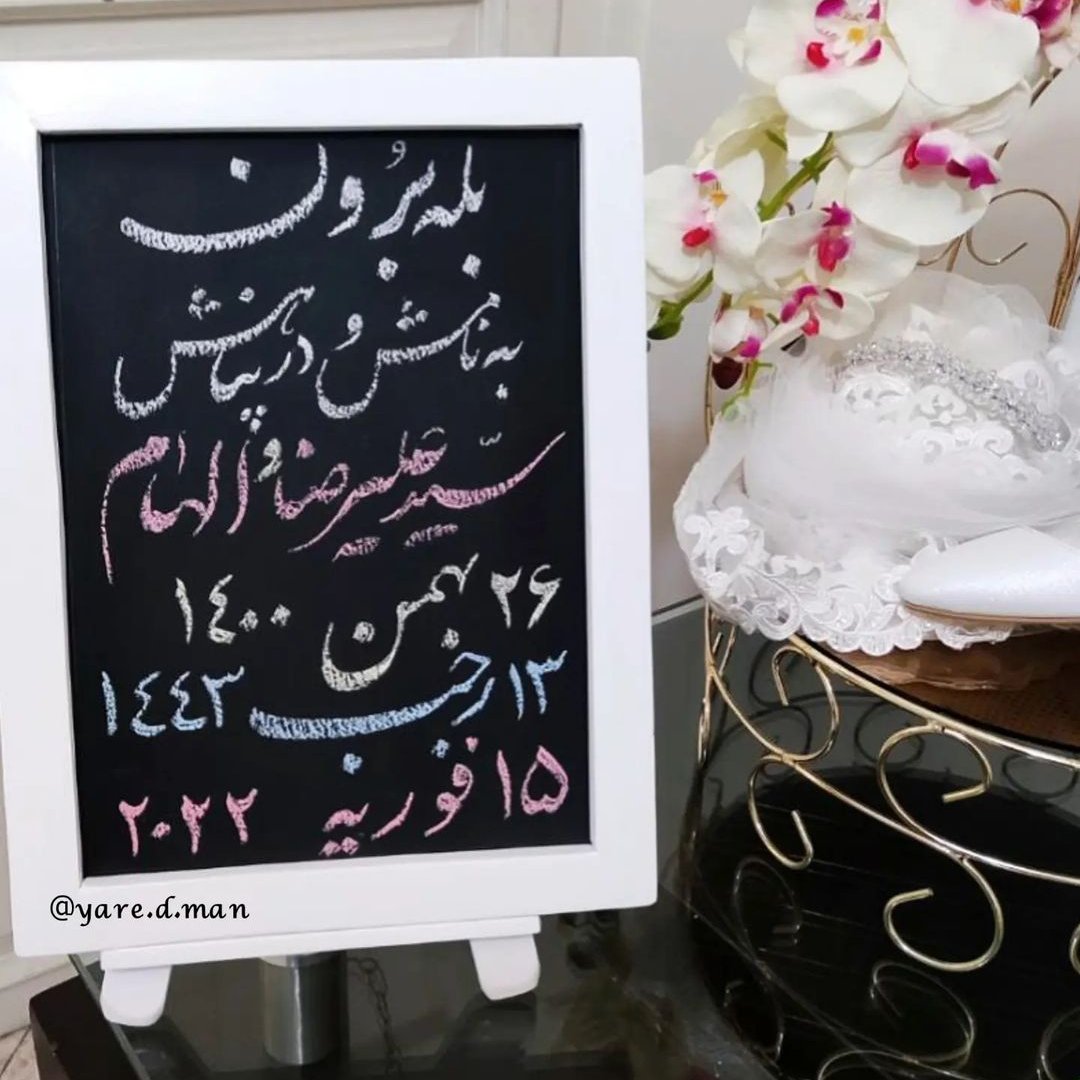 بله برُون
به نامش وُ در پناهش
سیّد علیرضا و الهام
۲۶ بهمن ۱۴۰۰
۱۳ رجب ۱۴۴۳
۱۵ فوریه ۲۰۲۲
@yare.d.man